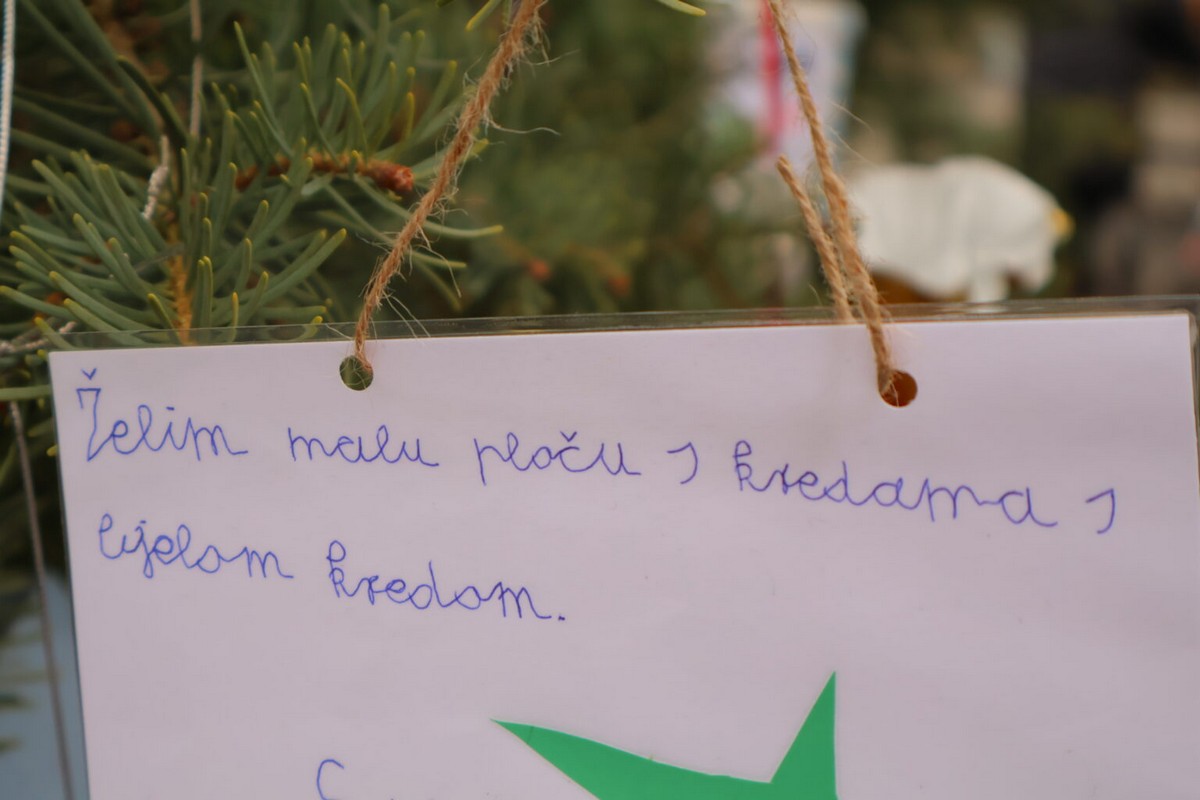 Želim malu ploču s kredama s
bijelom kredom.